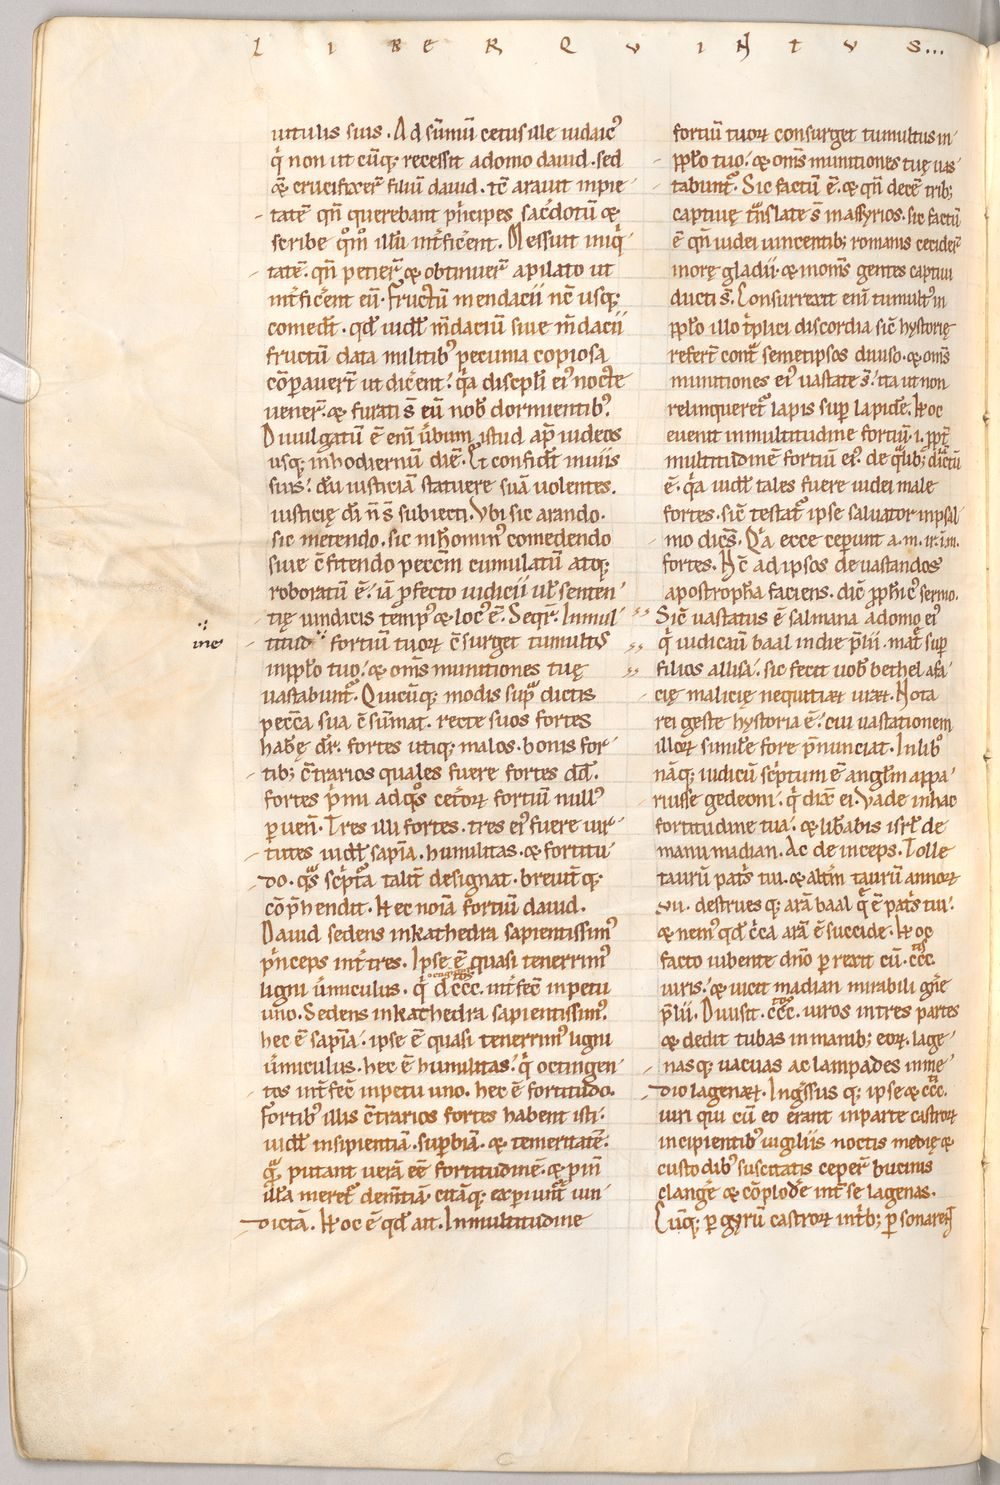 LIBER QVINTVS...
uitulis suis. Ad sūmū cetus ille iudaic᷒
q̇ non ut cūq; recessit adomo dauid. sed
& crucifixer̄ filiū dauid. tē arauit inpie
tatē qn̄ querebant p̄ncipes sac̄dotū &
scribe q̄m̊ illū int̄fic̄ent. Messuit iniq̇
tatē. qn̄ petier̄ & obtinuer̄ apilato ut
int̄fic̄ent eū. fructū mendacii nc̄ usq;
comed̄t. qd̄ uidl̄ m̄daciū siue m̄dacii
fructū data militib᷒ pecunia copiosa
cōpauer̄t ut dic̄ent. q̇a discipl̄i ei᷒ nocte
uener̄. & furati s̄ eū nob̄ dormientib᷒.
Diuulgatū ē eni ūbum istud ap̄ iudeos
usq; inhodiernū diē. Et confid̄t inuiis
suis. dū iusticiā statuere suā uolentes.
iusticię dī n̄ s̄ subiecti. Vbi sic arando.
sic metendo. sic inhomin᷒ comedendo
siue c̄fitendo pecc̄m cumulatū atq;
roboratū ē. iā p̄fecto iudicii ul̄ senten
tię uindicis temp᷒ & loc᷒ ē. Seqr̄. Inmul
ine
titud fortiū tuoꝝ c̄surget tumult᷒
inpp̄lo tuo. & om̄s munitiones tuę
uastabunt᷑. Quicūq; modis sup̄ dictis
pecc̄a sua c̄sūmat. recte suos fortes
hab̄ę dr̄. fortes utiq; malos. bonis for
tib; c̄trarios quales fuere fortes dd̄.
fortes p̄mi adq̊s cet̄oꝝ fortiū null᷒
puen̄. Tres illi fortes. tres ei᷒ fuere uir
tutes uidl̄ sapīa. humilitas. & fortitu
do. q̊s sc̄ptā talit̄ designat. breuit̄ q;
cōp̄hendit. Hec noīa fortiū dauid.
Dauid sedens inkathedra sapientissim᷒
p̄nceps int̄ tres. Ipse ē quasi tenerrim᷒
ligni ūmiculus. q̇ d̄ccc. int̄fec̄ inpetu
uno. Sedens inkathedra sapientissim᷒.
hec ē sapīa. ipse ē quasi tenerrim᷒ ligni
ūmiculus. hec ē humilitas. q̇ octingen
tos int̄fec̄ inpetu uno. hec ē fortitudo.
Fortib᷒ illis c̄trarios fortes habent isti.
uidl̄ insipientiā. supbiā. & temeritatē.
q̄ putant uerā ēē fortitudinē. & p̄in̄
illa meret᷑ dem̄tiā. eāq; expiunt᷑ uin
dictā. Hoc ē qd̄ ait. Inmultitudine
fortiū tuoꝝ consurget tumultus in
pp̄lo tuo. & om̄s munitiones tuę uas
tabunt᷑. Sic factū ē. & qn̄ decē trib;
captiuę t̄nslate s̄ inassyrios. sic factū
ē qn̄ iudei uincentib; romanis cecider̄
inore gladii. & inom̄s gentes captiui
ducti s̄. Consurrexit eni tumult᷒ in
pp̄lo illo t̄plici discordia sic̄ hystorię
refer̄t cont̄ semetipsos diuiso. & om̄s
munitiones ei᷒ uastate s̄. ita ut non
relinqueret᷑ lapis sup lapid̄ē. Hoc
euenit inmultitudine fortiū .i. ppt̄
multitudinē fortiū ei᷒. de q̄ib; dictū
ē. q̇a uidl̄ tales fuere iudei male
fortes. sic̄ testat᷑ ipse saluator inpsal
mo dicēs. Q̇a ecce ceperunt a.m. ir.ī.m.
fortes. Hc̄ adipsos deuastandos
apostropha faciens. dic̄ pphic᷒ sermo.
Sic̄ uastatus ē salmana adomo ei᷒
q̇ iudicauit baal indie p̄lii. mat̄ sup
filios allisa. sic fecit uob̄ bethel afa
cię malicię nequitiaꝝ uraꝝ. Nota
rei geste hystoria ē. cui uastationem
illoꝝ simile fore p̄nunciat. Inlib̊
nāq; iudicū sc̄ptum ē angl̄m appa
ruisse gedeoni. q̇ dix̄ ei. Vade inhac
fortitudine tua. & lib̄abis isrl̄ de
manu madian. Ac deinceps. Tolle
taurū pat̄s tui. & alt̄m taurū annoꝝ
vii. destruesq; arā baal q̄ ē pat̄s tui.
& nem᷒ qd̄ c̄ca arā ē succide. Hoc
facto iubente dn̄o perrexit cū .ccc.
uiris. & uicit madian mirabili gn̄e
p̄lii. Diuisit .ccc. uiros intres partes
& dedit tubas inmanib; eoꝝ. lage
nasq; uacuas ac lampades inme
dio lagenaꝝ. Ingressus q; ipse & ccc.
uiri qui cū eo erant inparte castroꝝ
incipientib᷒ uigiliis noctis medię &
custodib᷒ suscitatis ceper̄ bucinis
clange & cōplode int̄ se lagenas.
Cūq; p gyrū castroꝝ int̄b; psonaren̄t